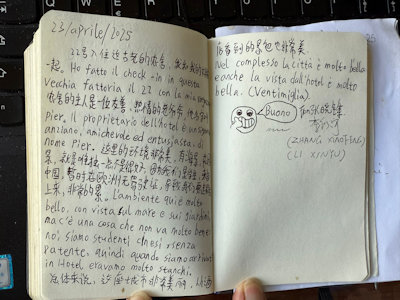 23/aprile/2025
22号入住这古老的农舍,我和我的
一起。Ho fatto il check-in in questa
Vecchia fattoria il 22 con la mia
农舍的主人是一位友善、热情的老爷爷,他名字叫
Pier. Il proprietario dell'hotel è un signore
anziano, amichevole ed entusiasta, di
nome Pier. 这里的环境非常美,有海景,
就是唯独一点是很好,因为我们是
中国 在欧洲无驾驶证,
上来,非常的累。L'ambiente qui è molto
bello, con vista sul mare e sui giardini,
ma c'è una cosa che non va molto bene
noi siamo studenti cinesi senza
patente, quindi quando siamo arrivati
in Hotel, eravamo molto stanchi.
总体来说,这座城市非常美丽,从酒
店看到的景色也非常美
Nel complesso la città è molto bella
e anche la vista dall'hotel è molto
bella. (Ventimiglia)
Buono
(ZHANG XIAOFENG)
(LI XINYU)